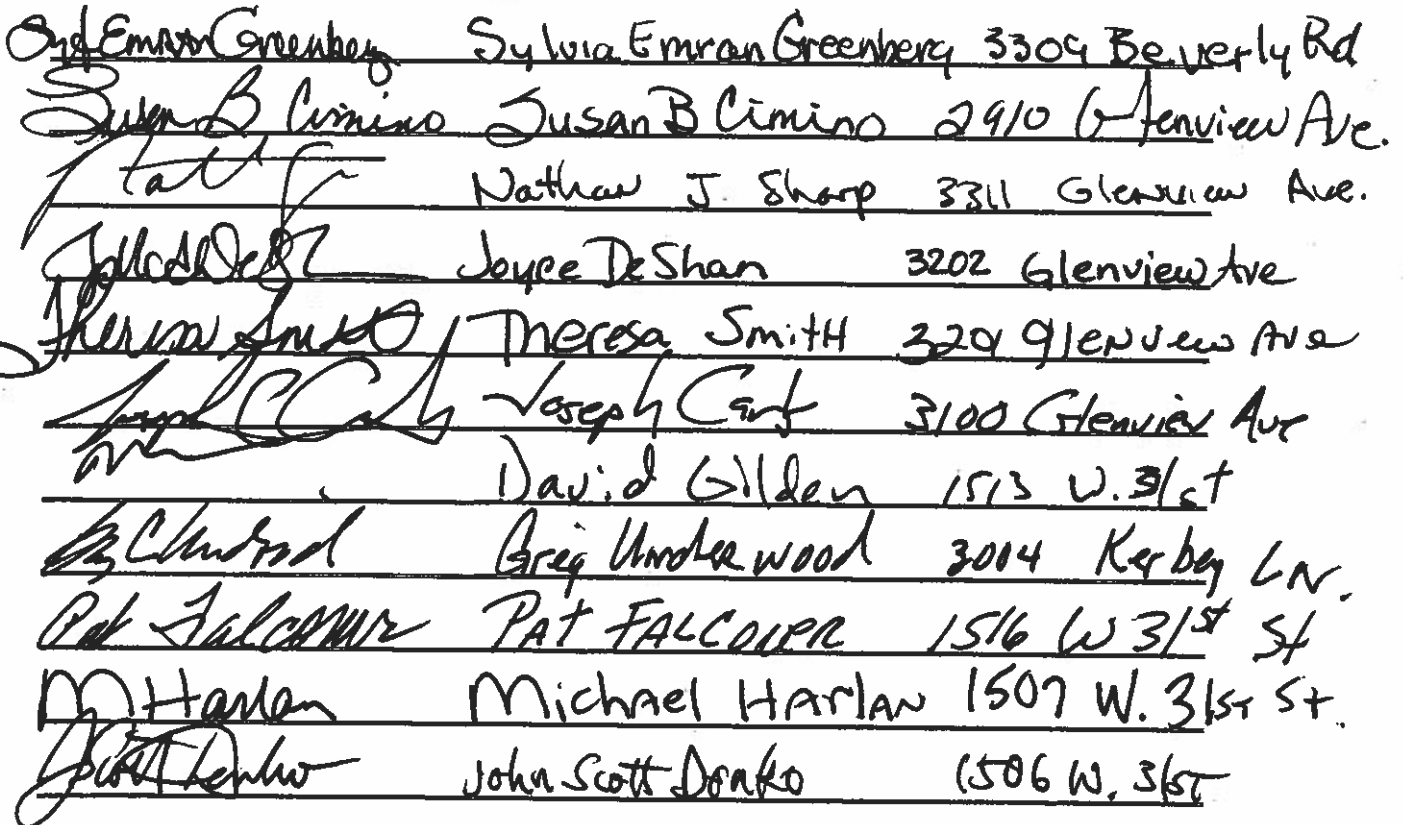 Syl Emran Greenberg Sylvia Emran Greenberg 3309 Beverly Rd
Susan B Cimino Susan B Cimino 2910 Glenview Ave.
Nathan J Sharp 3311 Glenview Ave.
Joyce DeShan 3202 Glenview Ave
Theresa Smith Theresa Smith 3204 Glenview Ave
Joseph 3100 Glenview Ave
David Gilden 1513 W. 31st
Greg Underwood 3004 Kerbey Ln.
Pat Falconer PAT FALCONER 1516 W 31st St
M Harlan Michael HARLAN 1507 W. 31st St.
John Scott Donko 1506 W. 31st